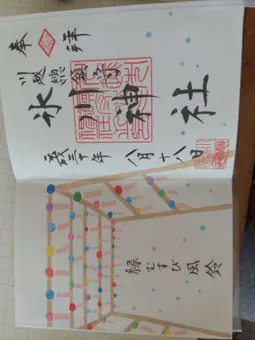 奉拝
川越総鎮守
氷川神社
平成三十年 八月十八日
縁むすび風鈴